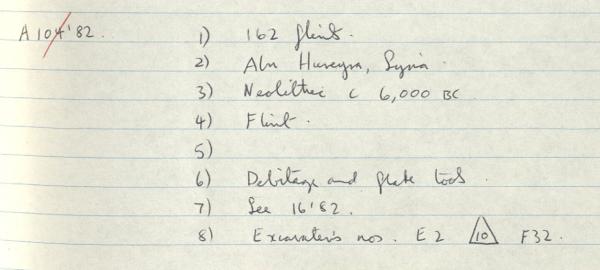 A104'82. 1) 162 flints.
2) Abu Hureyra, Syria.
3) Neolithic c 6,000 BC
4) Flint.
5)
6) Debitage and flake tools.
7) See 16'82.
8) Excavator's nos. E2 10 F32.